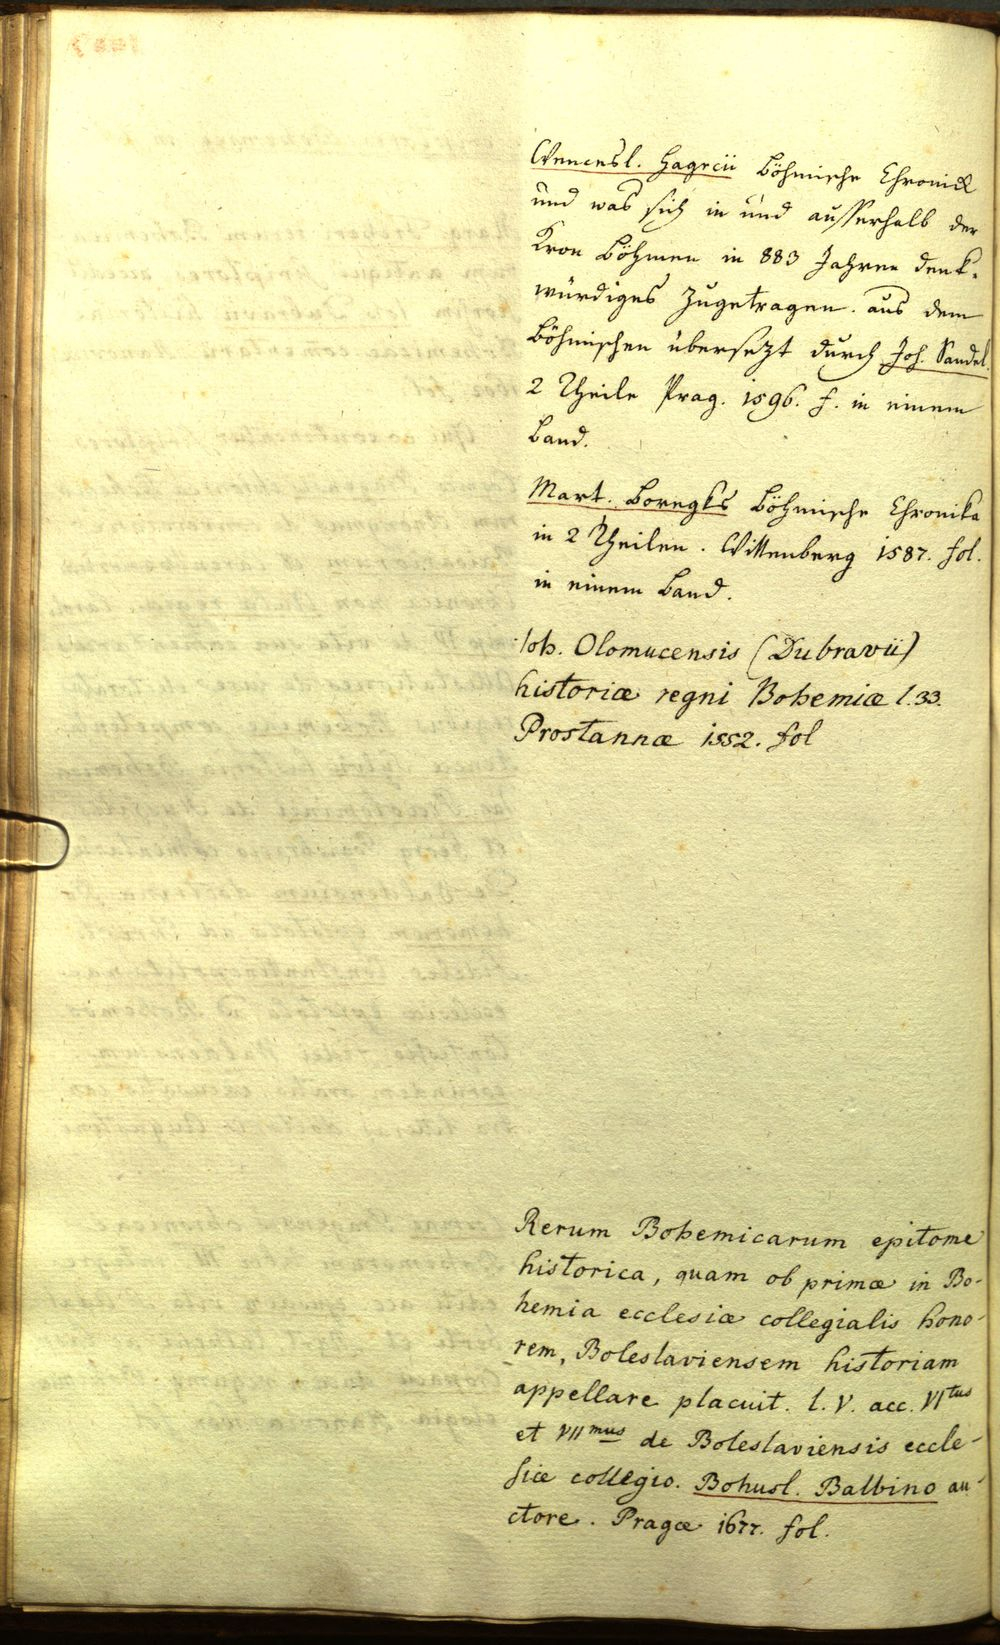 Wencesl. Hagecii Böhmische Chronick
und was sich in und ausserhalb der
Kron Böhmen in 883 Jahren denk-
würdiges zugetragen. aus dem
Böhmischen übersezt durch Joh. Sandel.
2 Theile Prag. 1596. f. in einem
Band.
Mart. Boregks Böhmische Chronika
in 2 Theilen. Wittenberg 1587. fol.
in einem Band.
Joh. Olomucensis (Dubravii)
historiæ regni Bohemiæ l. 33.
Prostannæ 1552. fol
Rerum Bohemicarum epitome
historica, quam ob primæ in Bo-
hemia ecclesiæ collegialis hono-
rem, Boleslaviensem historiam
appellare placuit. l. V. acc. VItus
et VIImus de Boleslaviensis eccle-
siæ collegio. Bohusl. Balbino au-
ctore. Pragæ 1677. fol.